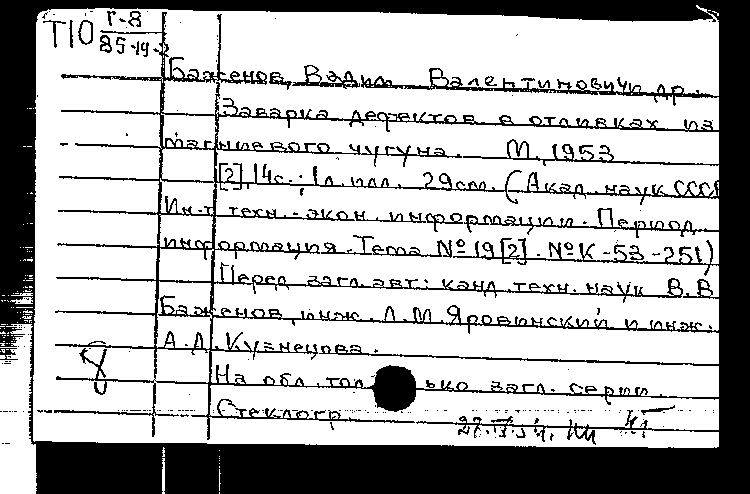 Т10 Г-8
85-14-2
Баженов, Вадим Валентинович и др.
Заварка дефектов в отливках из
магниевого чугуна. М., 1953
[2], 14с.; 1л. илл. 29см. (Акад. наук СССР
Ин-т техн.-экон. информации. Период.
информация. Тема №19[2]. №К-53-251)
Перед загл. авт.: канд. техн. наук В.В.
Баженов, инж. Л.М. Яровинский и инж.
А.Д. Кузнецова.
8
На обл. только загл. серии.
Стеклогр.